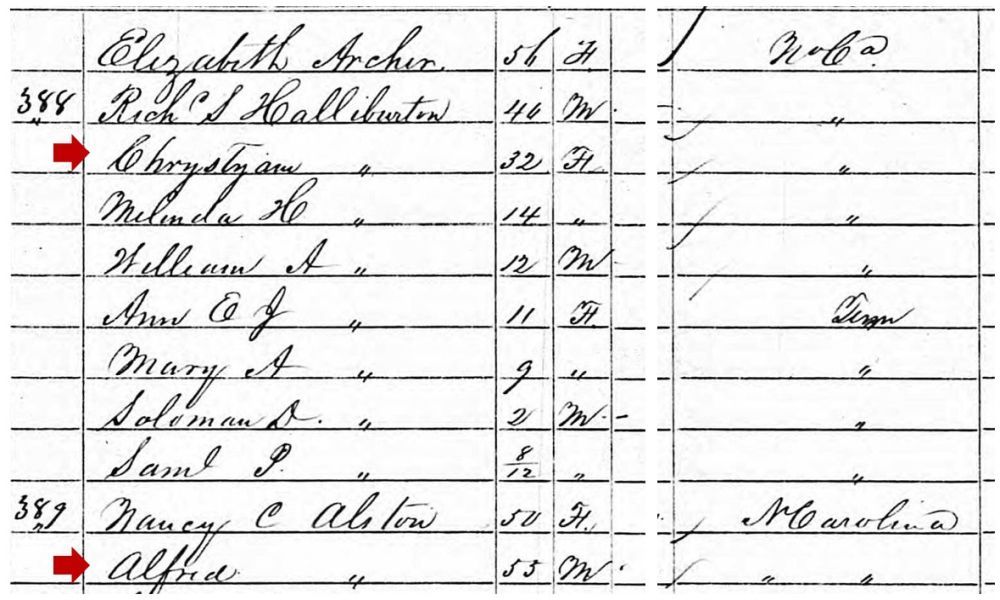 Elizabeth Archer. 56 F No Ca.
388 Rich C S Halliburton 40 M "
Chrystyann " 32 F. "
Melinda H " 14 " "
William A " 12 M "
Ann E J " 11 F. Tenn
Mary A " 9 " "
Soloman D. " 2 M "
Saml P. " 8/12 " "
389 Nancy C Alston 50 F. N Carolina
Alfred " 55 M " "